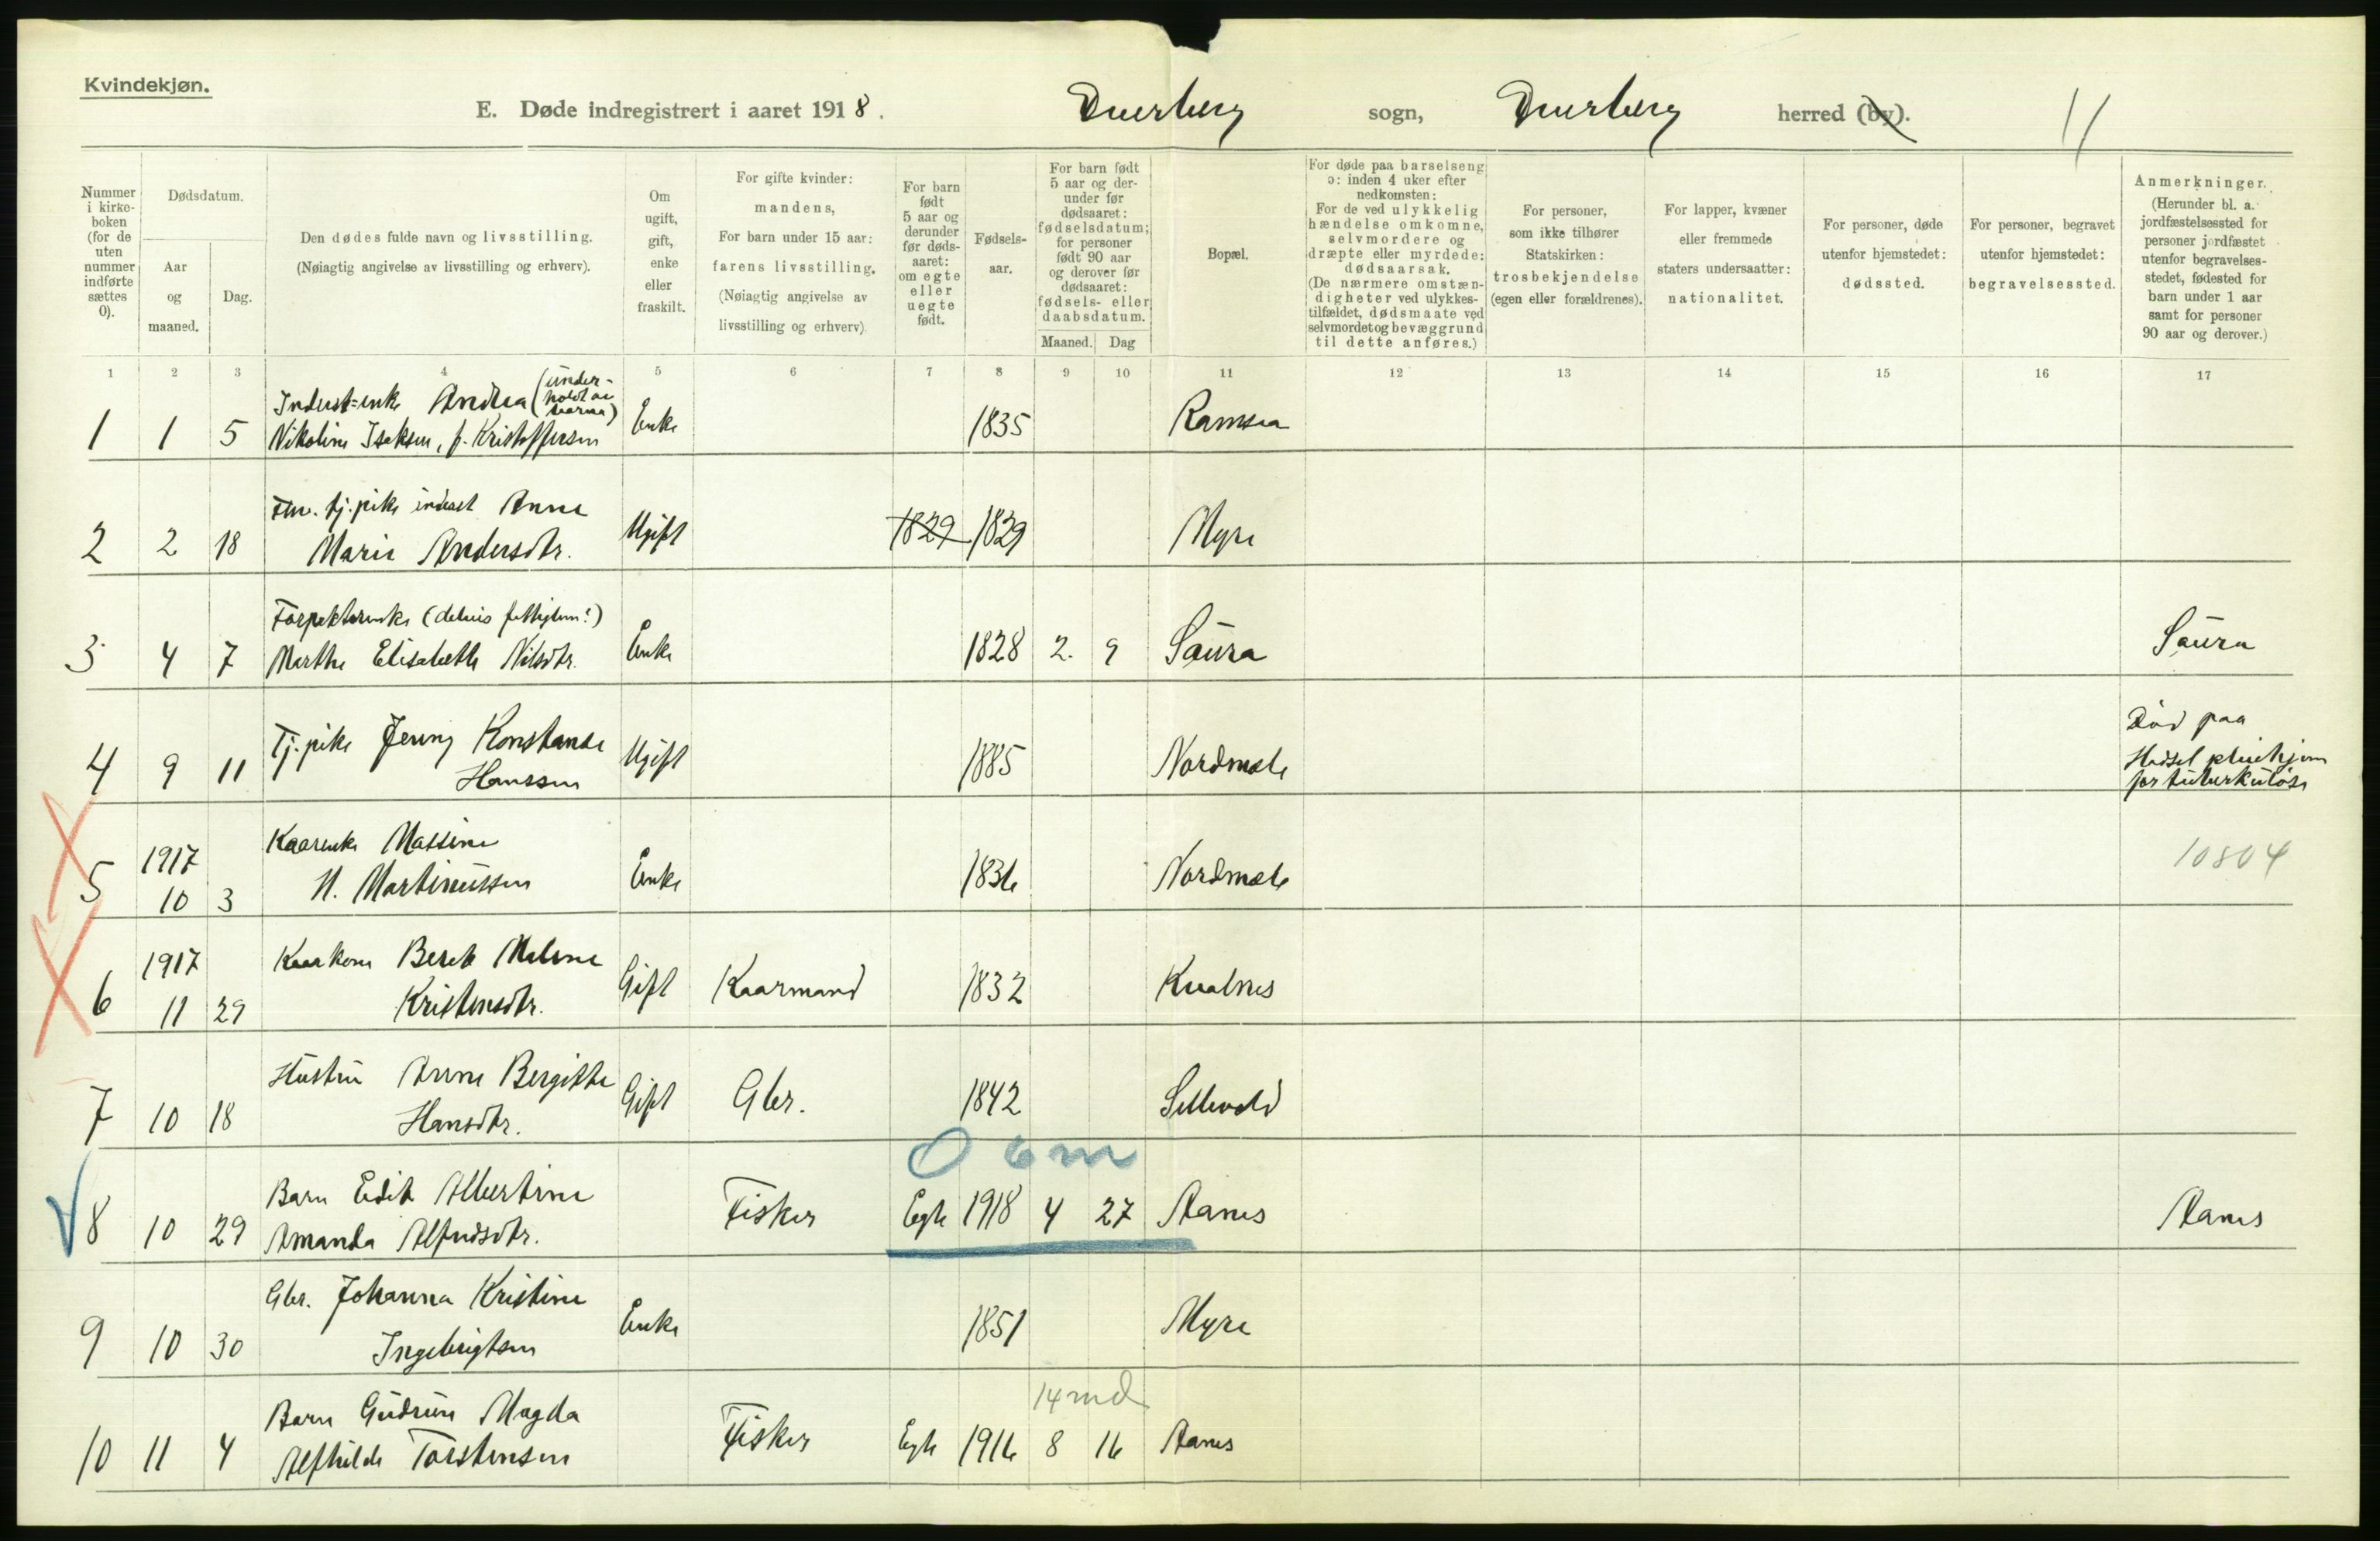 Kvindekjøn.
E. Døde indregistrert i aaret 1918. Dverberg sogn, Dverberg herred (by). 11
Nummer i kirke-boken (for de uten nummer indførte sættes 0).
Dødsdatum.
Aar og maaned.
Dag.
Den dødes fulde navn og livsstilling.
(Nøiagtig angivelse av livsstilling og erhverv).
Om ugift, gift, enke eller fraskilt.
For gifte kvinder: mandens,
For barn under 15 aar: farens livsstilling.
(Nøiagtig angivelse av livsstilling og erhverv)
For barn født 5 aar og derunder før døds-aaret: om egte eller uegte født.
Fødsels-aar.
For barn født 5 aar og der-under før dødsaaret: fødselsdatum; for personer født 90 aar og derover før dødsaaret: fødsels- eller daabsdatum.
Maaned. Dag
Bopæl.
For døde paa barselseng ɔ: inden 4 uker efter nedkomsten:
For de ved ulykkelig hændelse omkomne, selvmordere og dræpte eller myrdede: dødsaarsak.
(De nærmere omstæn-digheter ved ulykkes-tilfældet, dødsmaate ved selvmordet og bevæggrund til dette anføres.)
For personer, som ikke tilhører Statskirken: trosbekjendelse (egen eller forældrenes).
For lapper, kvæner eller fremmede staters undersaatter: nationalitet.
For personer, døde utenfor hjemstedet: dødssted.
For personer, begravet utenfor hjemstedet: begravelsessted.
Anmerkninger.
(Herunder bl. a. jordfæstelsessted for personer jordfæstet utenfor begravelses-stedet, fødested for barn under 1 aar samt for personer 90 aar og derover.)
1 2 3 4 5 6 7 8 9 10 11 12 13 14 15 16 17
Inderst=enke Andrea (under-holdt av
1 1 5 Nikoline Isaksen, f. Kristoffersen Enke 1835 Ramsaa
tj. pike inderst Anne
2 2 18 Marie Andersdtr. Ugift 1829 1829 Myre
Forpakterenke (delvis
3 4 7 Marthe Elisabeth Nilsdtr. Enke 1828 2. 9 Saura Saura
4 9 11 Tj. pike Jenny Konstanse Hanssen Ugift 1885 Nordmele Død paa
Hadsel pleiehjem
for tuberkuløse
1917 Kaarenke Massine
5 10 3 H. Martinussen Enke 1836 Nordmele 10804
1917 Kaarkone Beret Malene
6 11 29 Kristensdtr. Gift Kaarmand 1832 Kvalnes
Hustru Anne Bergitte
7 10 18 Hansdtr. Gift Gbr. 1842 Sellevold
0 6m
Barn Edit Albertine
8 10 29 Amanda Alfredsdtr. Fisker Egte 1918 4 27 Aanes Aanes
Gbr. Johanna Kristine
9 10 30 Ingebrigtsen Enke 1851 Myre
14 md
Barn Gudrun Magda
10 11 4 Alfhilde Torstensen Fisker Egte 1916 8 16 Aanes